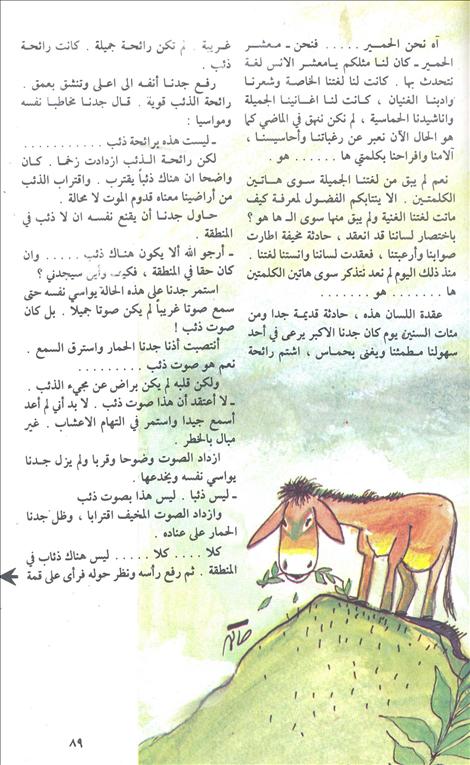 آه نحن الحمير ..... فنحن ـ معشر
الحمير ـ كان لنا مثلكم يامعشر الانس لغة
نتحدث بها . كانت لنا لغتنا الخاصة وشعرنا
وادبنا الغنيان ، كانت لنا اغانينا الجميلة
واناشيدنا الحماسية ، لم نكن ننهق في الماضي كما
هو الحال الآن نعبر عن رغباتنا وأحاسيسنا ،
آلامنا وافراحنا بكلمتي ها ...... هو .
نعم لم يبق من لغتنا الجميلة سوى هاتين
الكلمتين . الا ينتابكم الفضول لمعرفة كيف
ماتت لغتنا الغنية ولم يبق منها سوى الـ ها هو ؟
باختصار لساننا قد انعقد ، حادثة مخيفة اطارت
صوابنا وأرعبتنا ، فعقدت لساننا وانستنا لغتنا .
منذ ذلك اليوم لم نعد نتذكر سوى هاتين الكلمتين
ها ....... هو ........
عقدة اللسان هذه ، حادثة قديمة جدا ومن
مئات السنين يوم كان جدنا الاكبر يرعى في أحد
سهولنا مطمئنا ويغنى بحماس ، اشتم رائحة
غريبة . لم تكن رائحة جميلة . كانت رائحة
ذئب .
رفع جدنا أنفه الى اعلى وتنشق بعمق .
رائحة الذئب قوية . قال جدنا مخاطبا نفسه
ومواسيا :
ـ ليست هذه برائحة ذئب ..........
لكن رائحة الذئب ازدادت زخما . كان
واضحا ان هناك ذئباً يقترب . واقتراب الذئب
من أراضينا معناه قدوم الموت لا محالة .
حاول جدنا أن يقنع نفسه ان لا ذئب في
المنطقة .
ـ أرجو الله ألا يكون هناك ذئب ..... وان
كان حقا في المنطقة ، فكيف وأين سيجدني ؟
استمر جدنا على هذه الحالة يواسي نفسه حتى
سمع صوتا غريباً لم يكن صوتا جميلا . بل كان
صوت ذئب !
أنتصبت أذنا جدنا الحمار واسترق السمع .
نعم هو صوت ذئب .........
ولكن قلبه لم يكن براض عن مجيء الذئب .
ـ لا أعتقد أن هذا صوت ذئب . لا بد أني لم أعد
أسمع جيدا واستمر في التهام الاعشاب . غير
مبال بالخطر .
ازداد الصوت وضوحا وقربا ولم يزل جدنا
يواسي نفسه ويخدعها .
ـ ليس ذئبا . ليس هذا بصوت ذئب
وازداد الصوت المخيف اقترابا ، وظل جدنا
الحمار على عناده .
كلا .... كلا ..... ليس هناك ذئاب في
المنطقة . ثم رفع رأسه ونظر حوله فرأى على قمة
٨٩